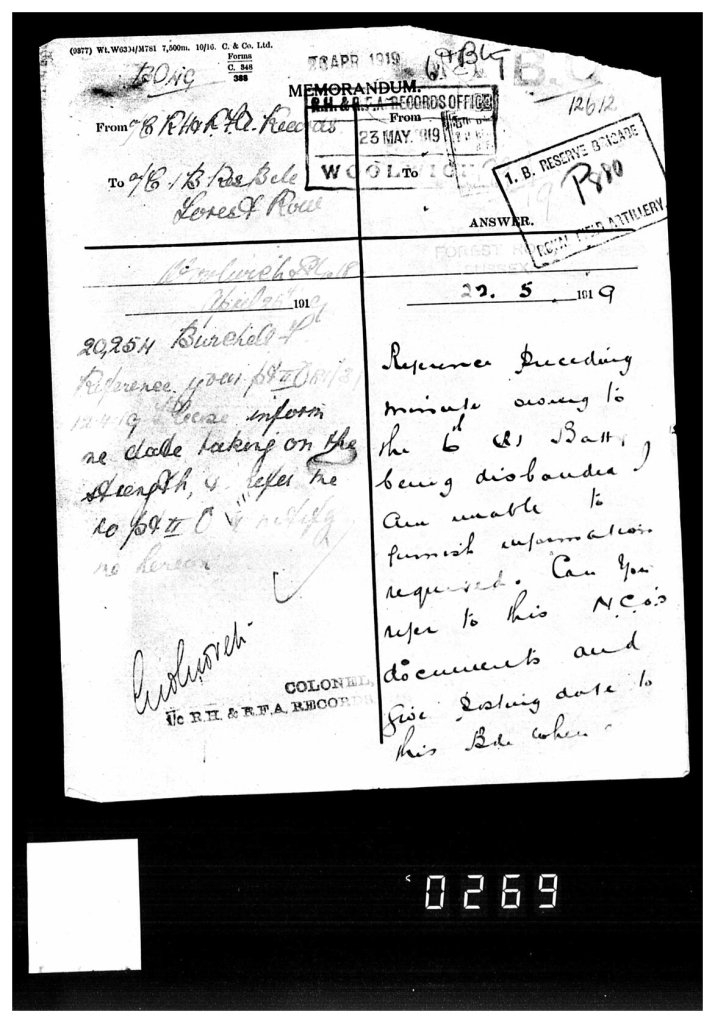 (0377) Wt.W6304/M781 7,500m. 10/16. C. & Co. Ltd.
Forms
C. 348
388
APR 1919
MEMORANDUM.
R.H. & R.F.A. RECORDS OFFICE
From
23 MAY. 1919
WOOLWICH
From O/C R.H & R.F.A. Records
To O/C 1 B Res Bde
Forest Row
To
12612
1. B. RESERVE BRIGADE
P880
ROYAL FIELD ARTILLERY
ANSWER.
FOREST ROW
SUSSEX
Woolwich
April 1919
20,254 Burchell
Reference your pt II O
Please inform
me date taking on the
strength, & refer me
to pt II O
no hereon
COLONEL,
I/c R.H. & R.F.A. RECORDS
22. 5 1919
Reference preceding
minute owing to
the 6th Res Batty
being disbanded I
am unable to
furnish information
required. Can you
refer to this N.C.O's
documents and
give posting date to
this Bde when
0269